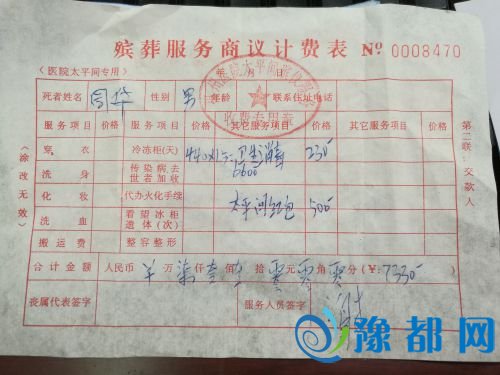 殡葬服务商议计费表 № 0008470
（医院太平间专用） 年 月 日
死者姓名 性别 男 年龄 联系住址电话
服务项目 价格 服务项目 价格 其它服务项目 价格 其它服务项目 价格
穿衣 冷冻柜(天) 230
洗身 传染病去世者加收 6600
化妆 代办火化手续 太平间红包 500
洗血 看望冰柜遗体(次)
搬运费 整容整形
合计金额 人民币 万 柒仟 佰 拾 零元 零角 零分(￥: 7330
丧属代表签字 服务人员签字
（涂改无效）
第二联：交款人
收费专用章
豫都网